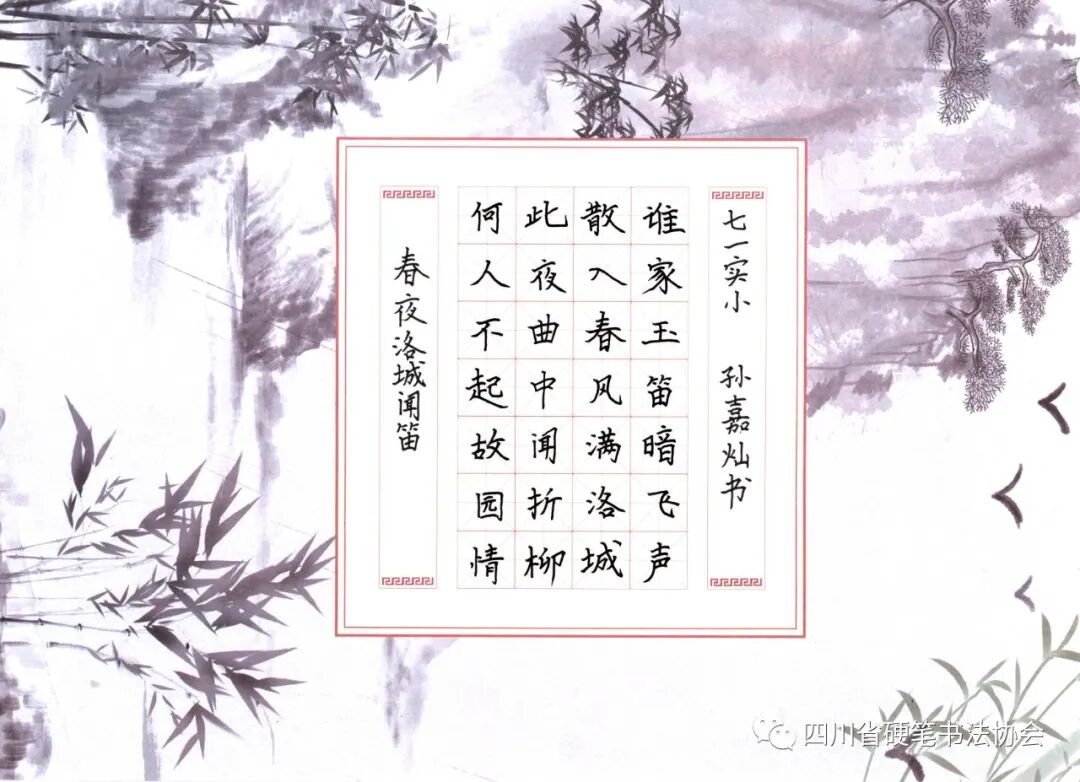 七一实小 孙嘉灿书
谁家玉笛暗飞声
散入春风满洛城
此夜曲中闻折柳
何人不起故园情
春夜洛城闻笛
四川省硬笔书法协会